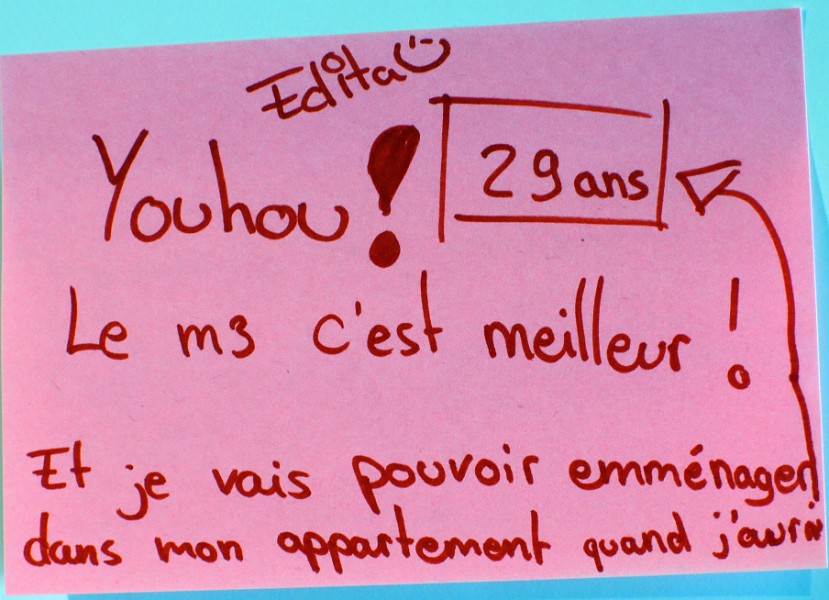 Edita
Youhou! 29 ans
Le m3 c'est meilleur !
Et je vais pouvoir emménager
dans mon appartement quand j'aurai